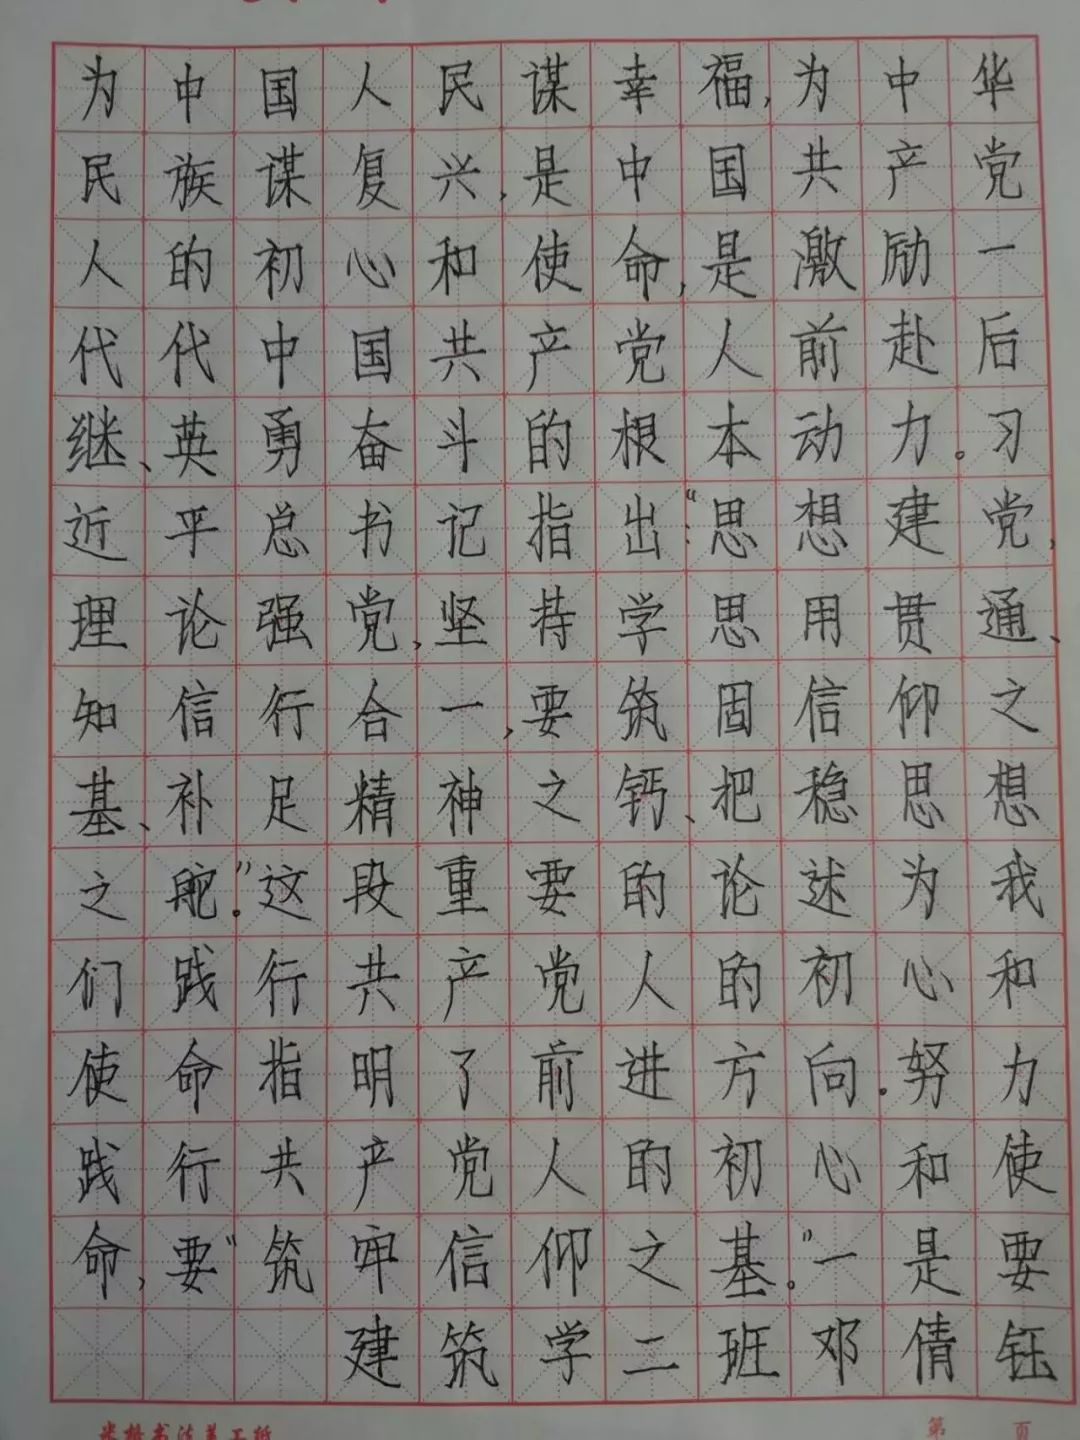 为中国人民谋幸福,为中华
民族谋复兴,是中国共产党
人的初心和使命,是激励一
代代中国共产党人前赴后
继、英勇奋斗的根本动力。习
近平总书记指出:“思想建党,
理论强党,坚持学思用贯通、
知信行合一,要筑固信仰之
基、补足精神之钙、把稳思想
之舵。”这段重要的论述为我
们践行共产党人的初心和
使命指明了前进方向。努力
践行共产党人的初心和使
命,要“筑牢信仰之基。”一是要
建筑学二班邓倩钰
米格书法美工纸
第 页